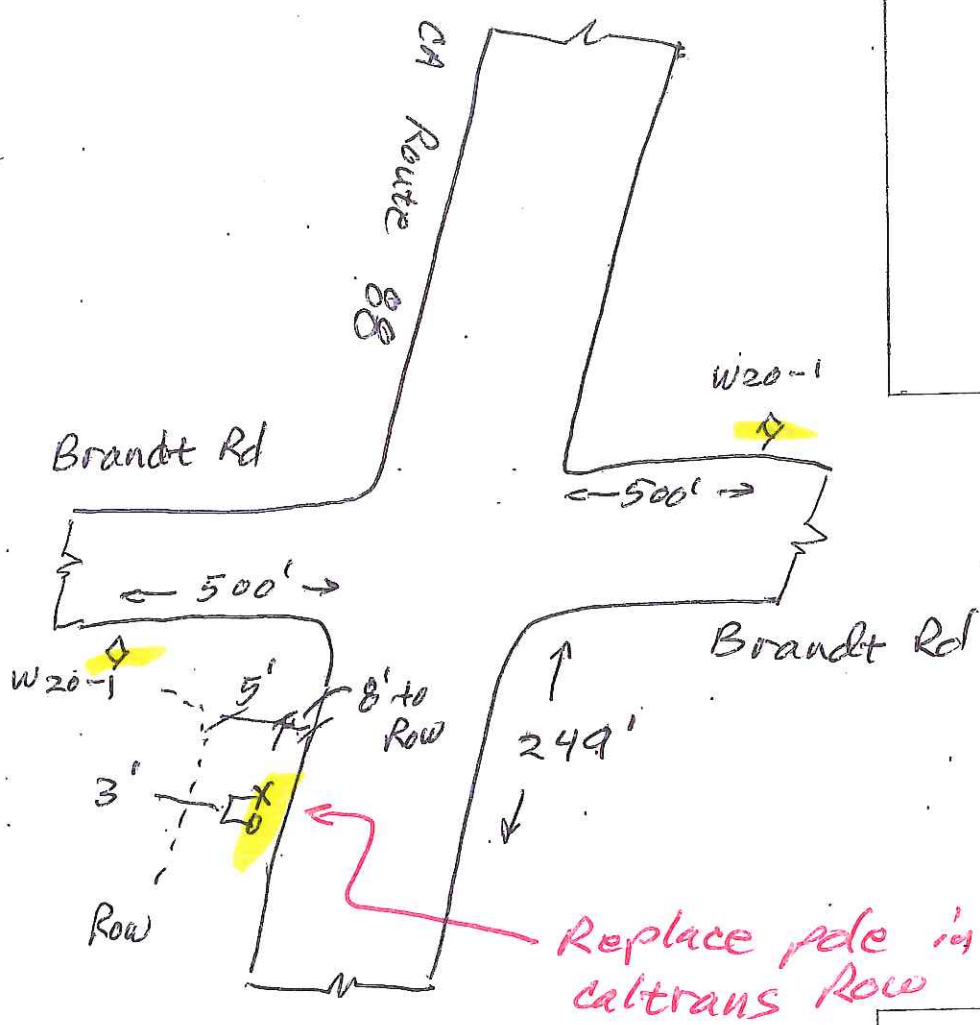 CA Route 88
W20-1
Brandt Rd
500'
500'
Brandt Rd
W20-1
5'
8' to
Row
249'
3'
X
O
Row
Replace pole in
caltrans Row